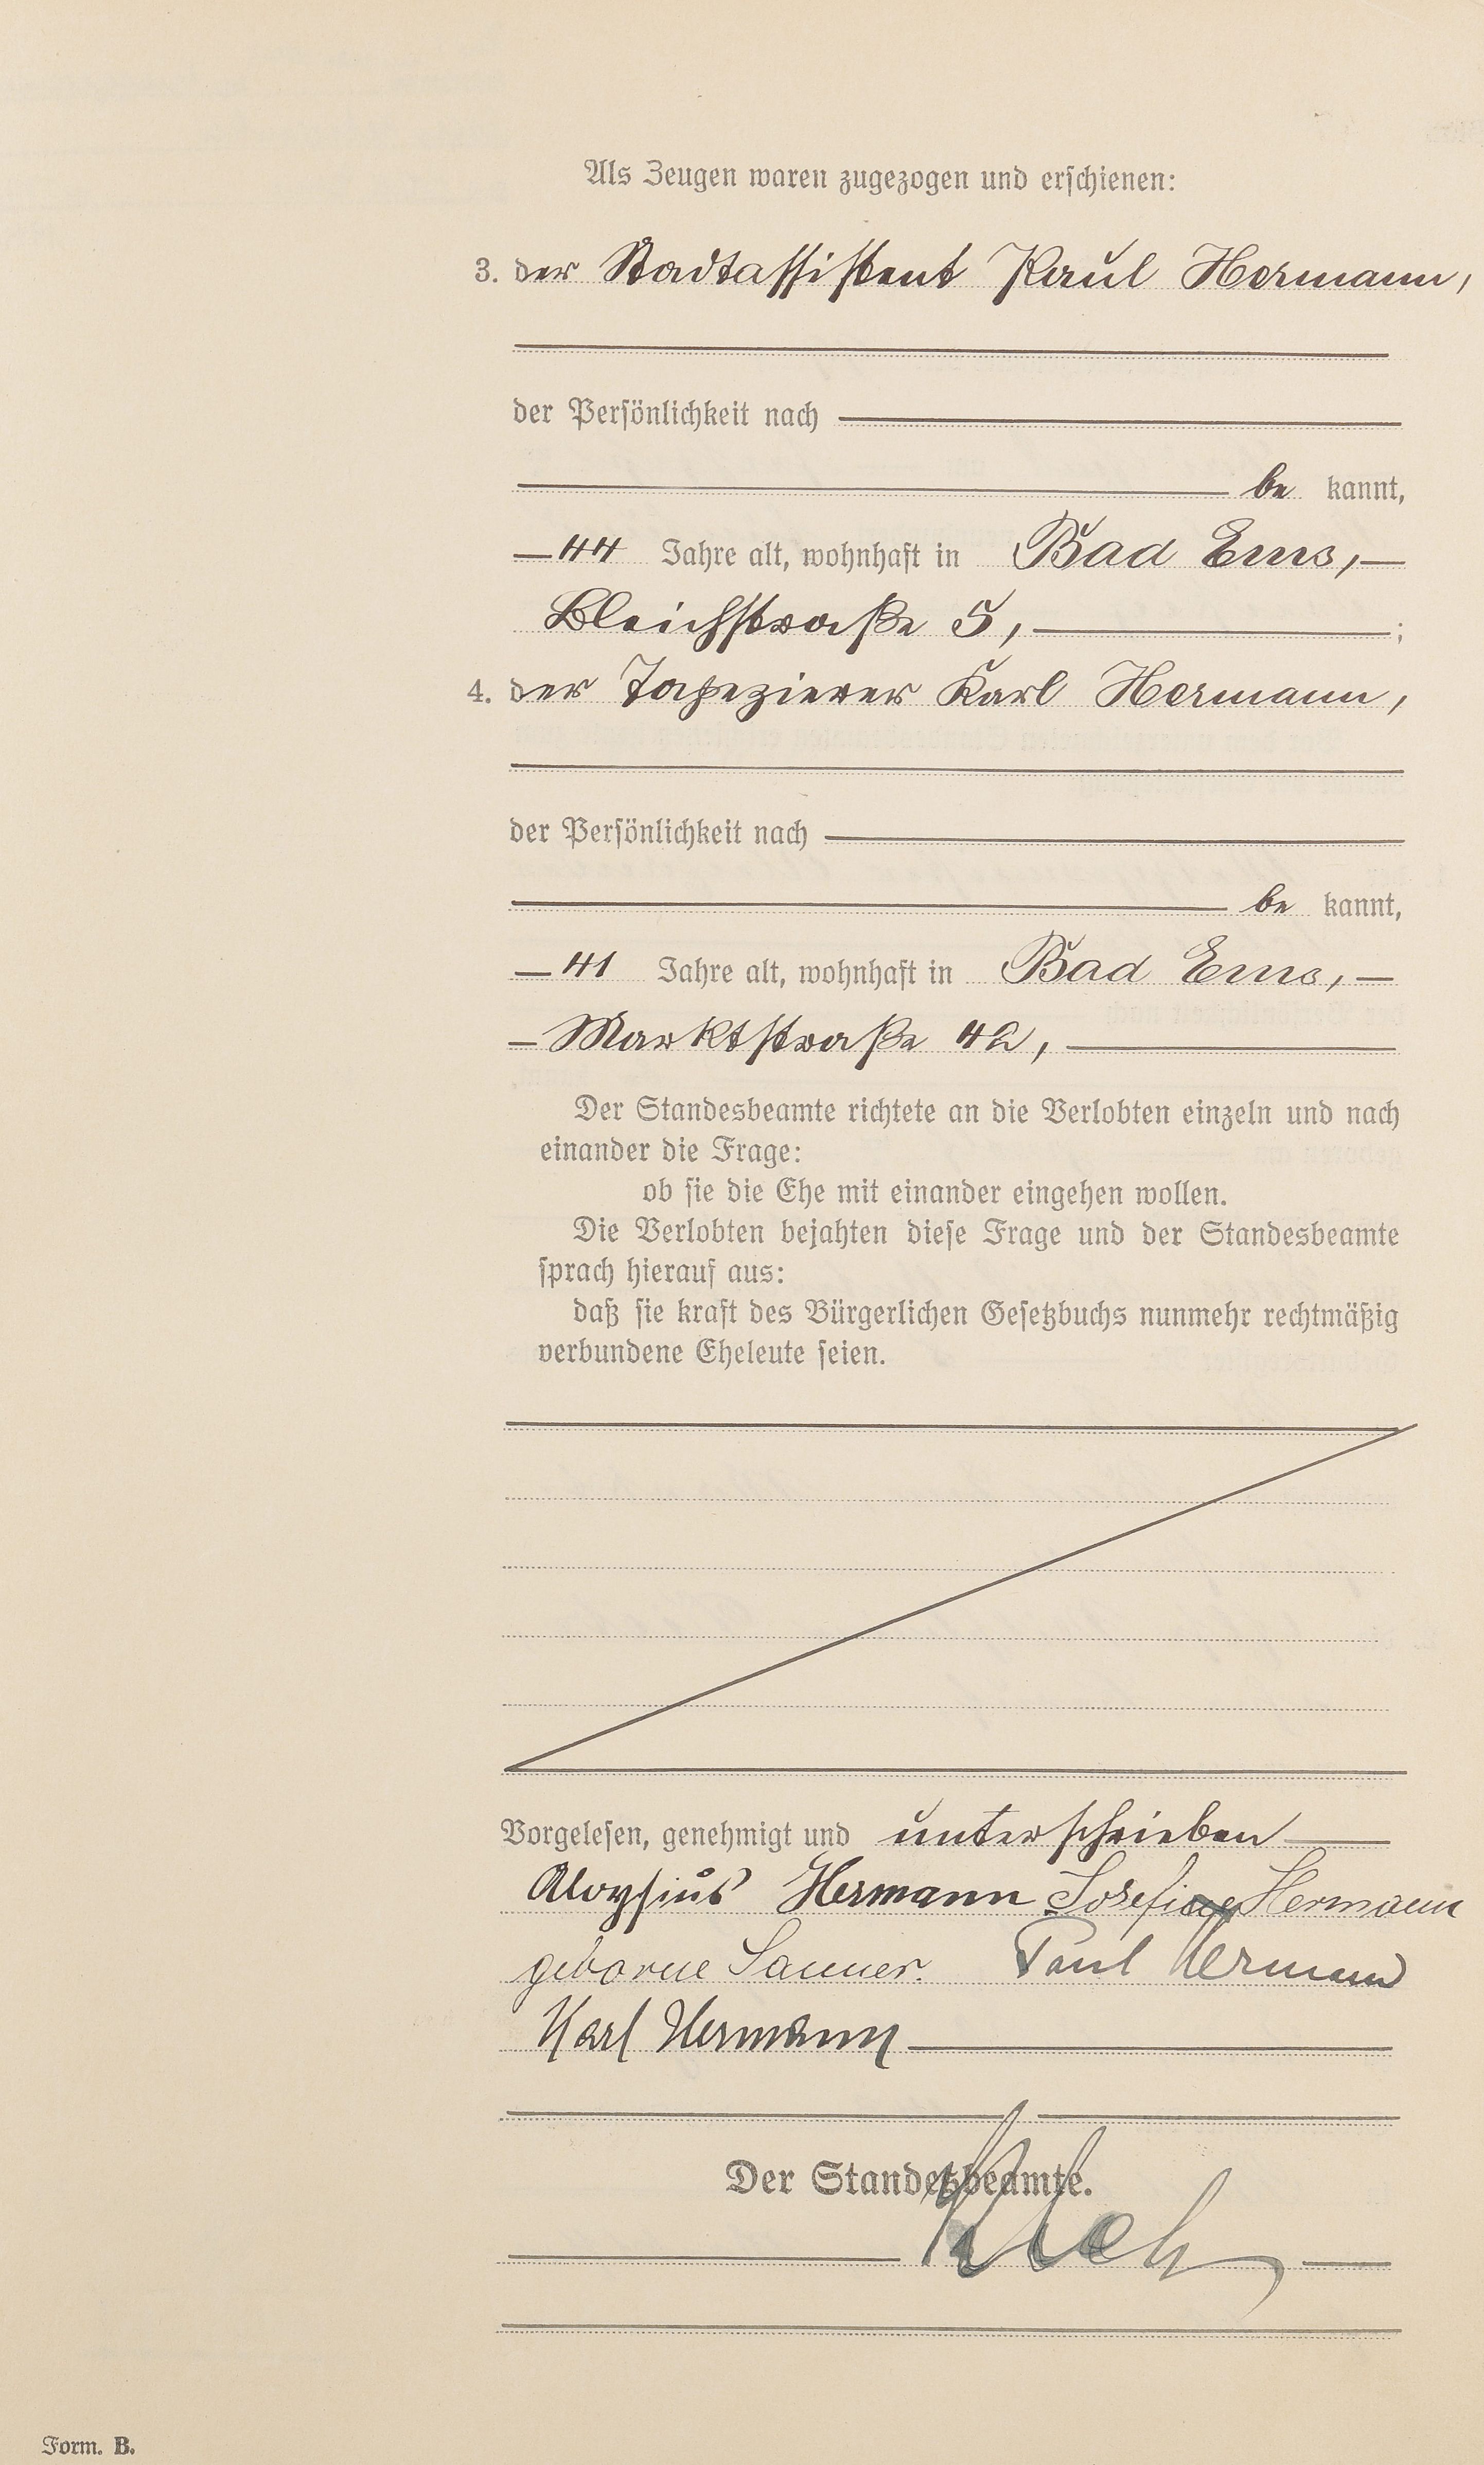 Als Zeugen waren zugezogen und erschienen:
3. der Stadtassistent Paul Hermann,
der Persönlichkeit nach
be kannt,
44 Jahre alt, wohnhaft in Bad Ems,
Bleichstraße 5, ;
4. der Tapezierer Karl Hermann,
der Persönlichkeit nach
be kannt,
41 Jahre alt, wohnhaft in Bad Ems,
Marktstraße 42,
Der Standesbeamte richtete an die Verlobten einzeln und nach
einander die Frage:
ob sie die Ehe mit einander eingehen wollen.
Die Verlobten bejahten diese Frage und der Standesbeamte
sprach hierauf aus:
daß sie kraft des Bürgerlichen Gesetzbuchs nunmehr rechtmäßig
verbundene Eheleute seien.
Vorgelesen, genehmigt und unterschrieben
Aloysius Hermann Josefine Hermann
geborne Sanner. Paul Hermann
Karl Hermann
Der Standesbeamte.
Form. B.